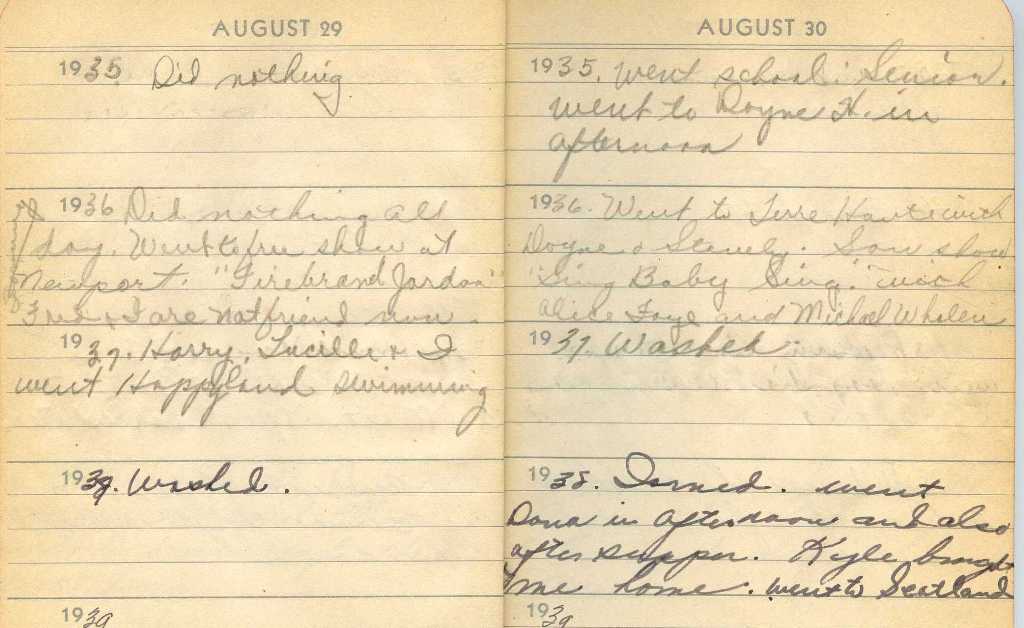 AUGUST 29
1935 Did nothing
1936 Did nothing all
day. Went to free show at
Newport. "Firebrand Jordan"
Fred & I are not friend now.
1937. Harry, Lucille & I
went Happyland swimming
1938. Washed.
1939
AUGUST 30
1935. went school. Senior.
went to Doyne H. in
afternoon
1936. Went to Terre Haute with
Doyne & Stanely. Saw show
"Sing Baby Sing." with
Alice Faye and Michael Whalen
1937 Washed.
1938. Ironed. went
Dana in afternoon and also
after supper. Kyle brought
me home. went to Scotland
1939